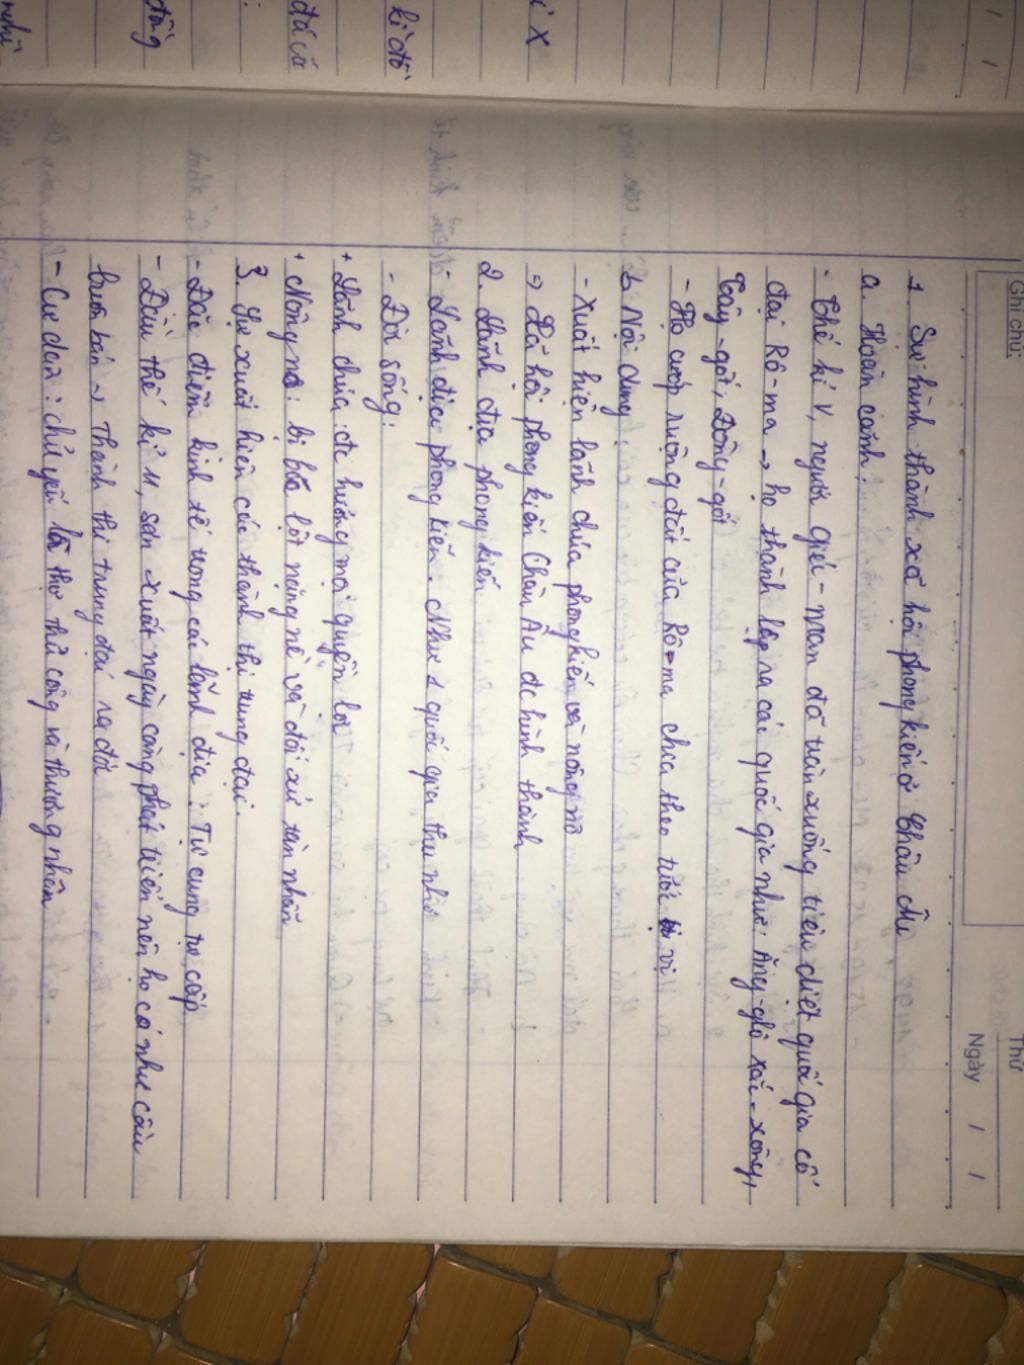 Ghi chú:
Thứ
Ngày / /
1. Sự hình thành xã hội phong kiến ở Châu Âu
a. Hoàn cảnh:
- Thế kỉ V, người Giéc-man đã tràn xuống tiêu diệt quốc gia cổ
đại Rô-ma → họ thành lập ra các quốc gia như: Ăng-glô xắc-xông,
Tây-gốt, Đông-gốt
- Họ cướp ruộng đất của Rô-ma chia theo tước vị
b. Nội dung:
- Xuất hiện lãnh chúa phong kiến và nông nô
⇒ Xã hội phong kiến Châu Âu đc hình thành
2. Lãnh địa phong kiến
- Lãnh địa phong kiến: Như 1 quốc gia thu nhỏ
- Đời sống:
+ Lãnh chúa: đc hưởng mọi quyền lợi
+ Nông nô: bị bóc lột nặng nề và đối xử tàn nhẫn
3. Sự xuất hiện các thành thị trung đại.
- Đặc điểm kinh tế trong các lãnh địa: Tự cung tự cấp
- Đầu thế kỉ 11, sản xuất ngày càng phát triển nên họ có nhu cầu
buôn bán → thành thị trung đại ra đời
- Cư dân: chủ yếu là thợ thủ công và thương nhân